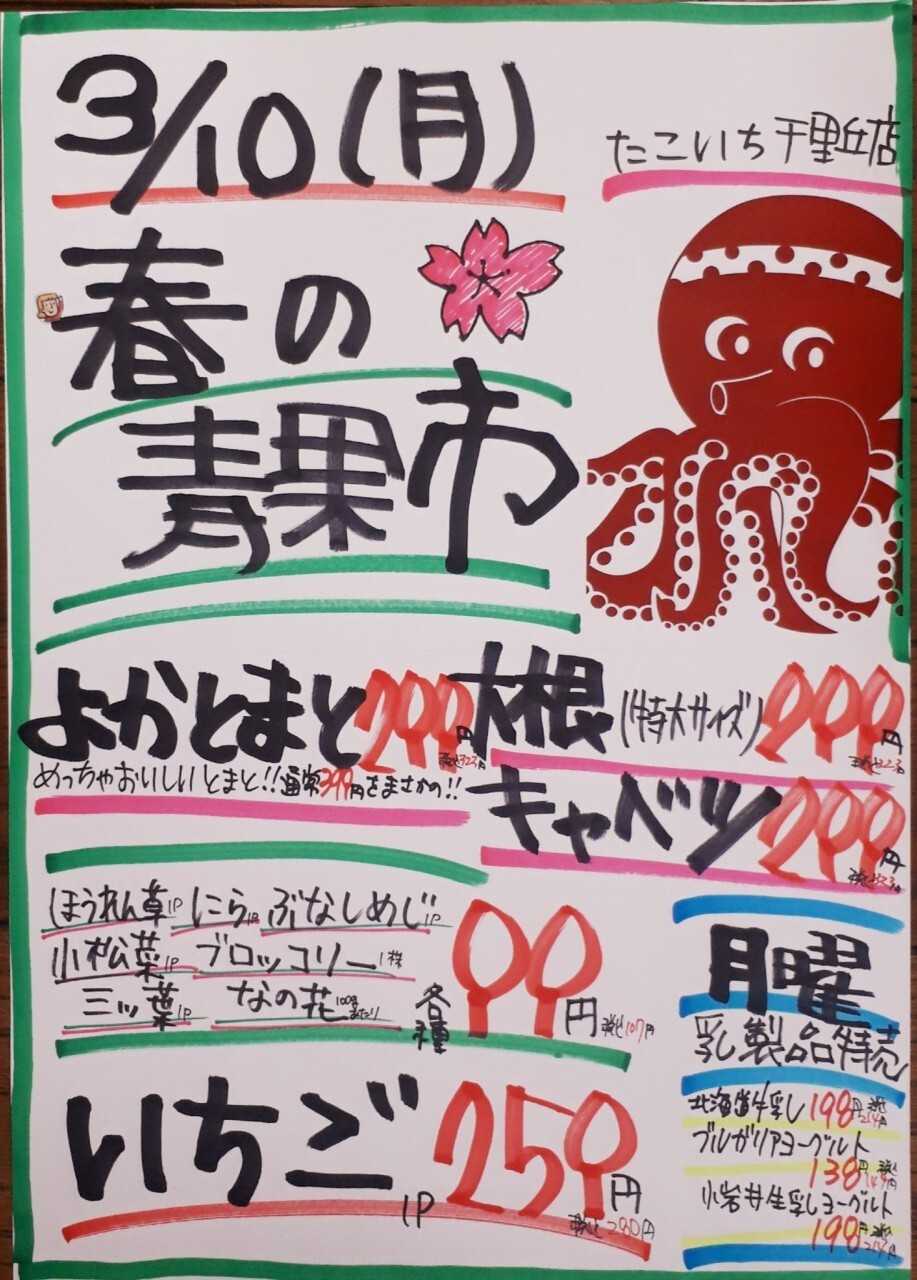 3/10(月)
たこいち 千里丘店
春の
青果市
よかとまと 299円 税込323円
めっちゃおいしいとまと!! 通常399円をまさかの!!
大根(特大サイズ) 299円 税込323円
キャベツ 299円 税込323円
ほうれん草1P にら1P ぶなしめじ1P
小松菜1P ブロッコリー1株
三ッ葉1P なの花100gあたり
各種 99円 税込107円
いちご 1P 259円 税込280円
月曜
乳製品特売
北海道牛乳 198円 税込214円
ブルガリアヨーグルト
138円 税込149円
小岩井生乳ヨーグルト
198円 税込214円